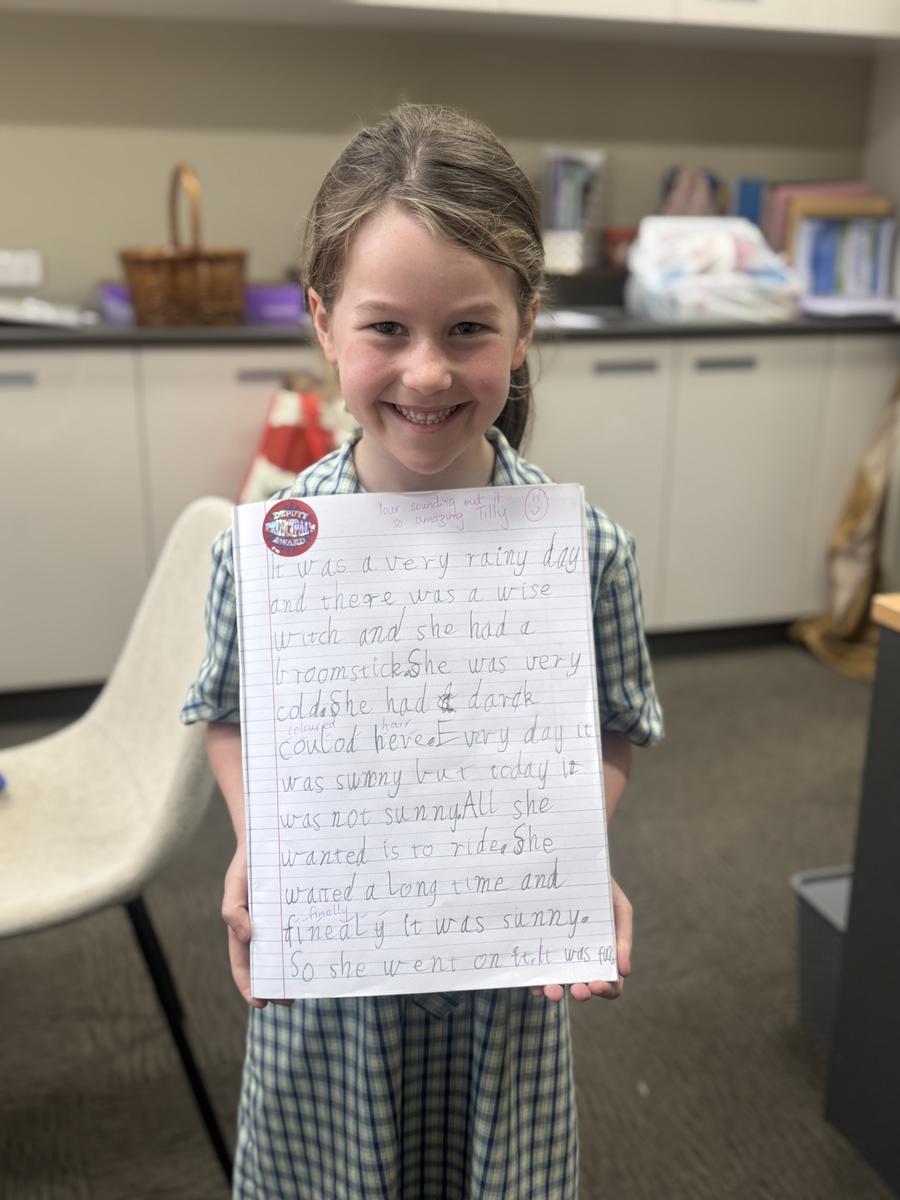 DEPUTY
PRINCIPAL'S
AWARD
Your sounding out it
so amazing Tilly
It was a very rainy day
and there was a wise
witch and she had a
broomstick.She was very
cold.She had a darck
coloured hair
coulod here.Every day it
was sunny but today it
was not sunny.All she
wanted is to ride.She
waited a long time and
finally
finealy it was sunny.
So she went on it.It was fun.